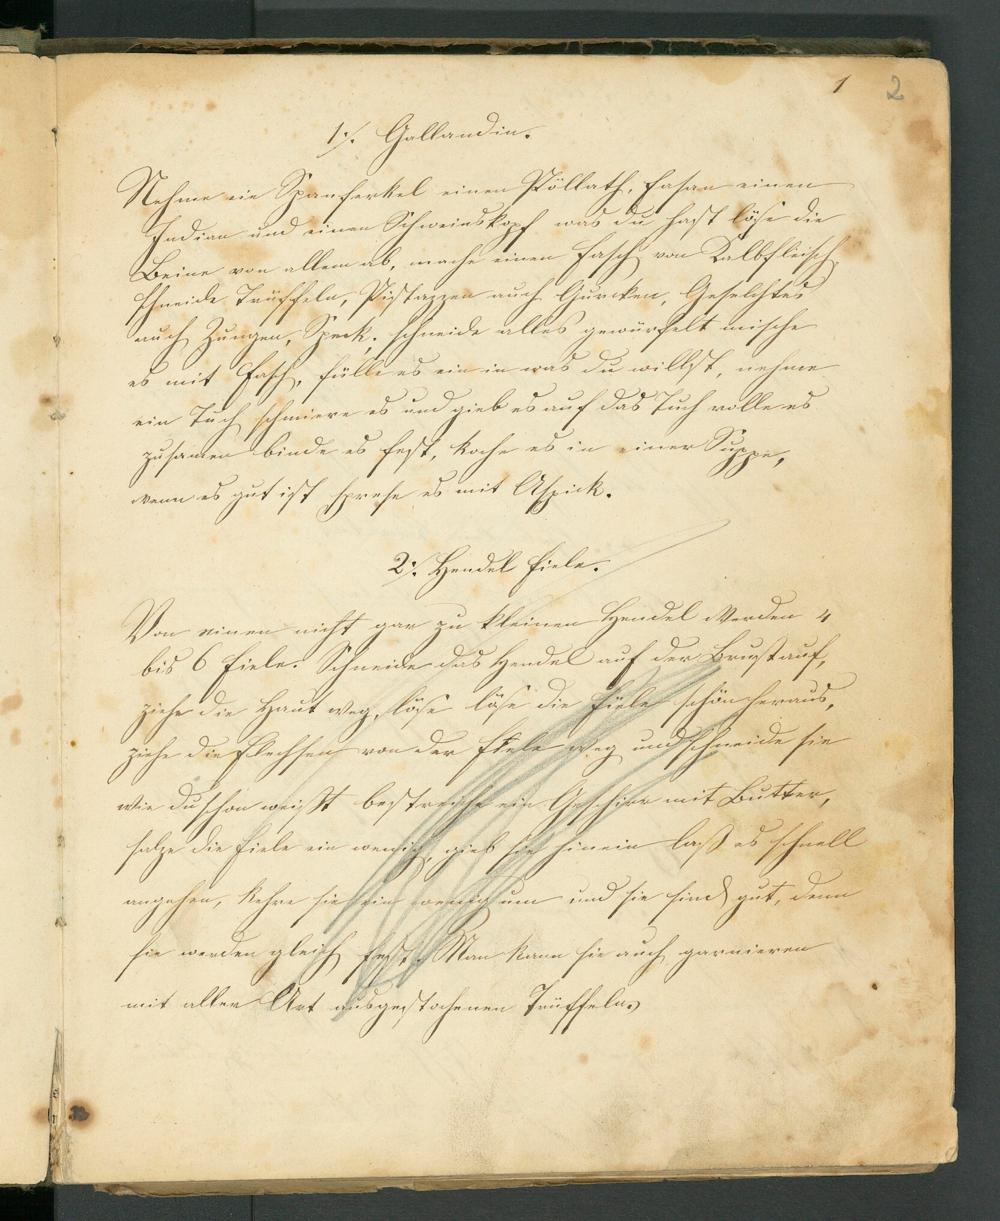 1 2
1./. Gallandin.
Nehme ein Spanferkel einen Pöllath, Fasan einen
Indian und einen Schweinskopf was du hast löse die
Beine von allem ab, mache einen Fasch von Kalbfleisch,
schneide Trüffeln, Pistazzen auch Gurcken, Geselchtes
auch Zungen, Speck, schneide alles gewürfelt mische
es mit Fasch, fülle es ein in was du willst, nehme
ein Tuch schmiere es und gieb es auf das Tuch rolle es
zusamen binde es fest, koche es in einer Suppe,
wenn es gut ist presse es mit Aspick.
2./. Hendel Fiele.
Von einen nicht gar zu kleinen Hendel werden 4
bis 6 Fiele. Schneide das Hendel auf der Brust auf,
ziehe die Haut weg, löse löse die Fiele schön heraus,
ziehe die Flechsen von der Fiele weg und schneide sie
wie du schon weißt bestreiche ein Geschirr mit Butter,
salze die Fiele ein wenig, gieb sie hinein laß es schnell
angehen, kehre sie ein wenig um und sie sind gut, denn
sie werden gleich fest. Man kann sie auch garnieren
mit aller Art ausgestochenen Trüffeln.